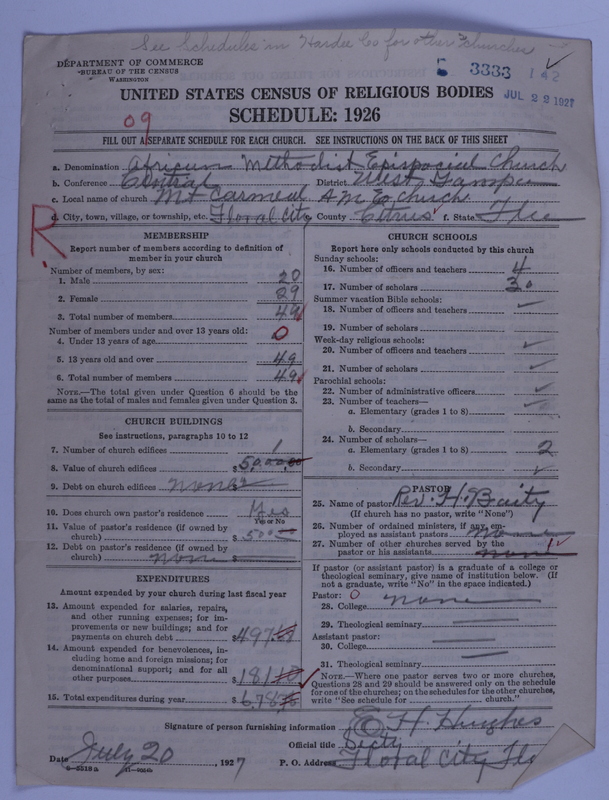 See Schedules in Hardee Co for other churches
DEPARTMENT OF COMMERCE
BUREAU OF THE CENSUS
WASHINGTON
3333 142
JUL 22 1927
UNITED STATES CENSUS OF RELIGIOUS BODIES
SCHEDULE: 1926
09
FILL OUT A SEPARATE SCHEDULE FOR EACH CHURCH. SEE INSTRUCTIONS ON THE BACK OF THIS SHEET
a. Denomination African Methodist Epispocial Church
b. Conference Central District West Tampa
c. Local name of church Mt Carmel A M E Church
d. City, town, village, or township, etc. Floral City County Citrus f. State Fla
R
MEMBERSHIP
Report number of members according to definition of
member in your church
Number of members, by sex:
1. Male 20
2. Female 29
3. Total number of members 49
Number of members under and over 13 years old:
4. Under 13 years of age 0
5. 13 years old and over 49
6. Total number of members 49
NOTE.—The total given under Question 6 should be the
same as the total of males and females given under Question 3.
CHURCH BUILDINGS
See instructions, paragraphs 10 to 12
7. Number of church edifices 1
8. Value of church edifices $
9. Debt on church edifices none
10. Does church own pastor's residence Yes
Yes or No
11. Value of pastor's residence (if owned by
church) $
12. Debt on pastor's residence (if owned by
church) none $
EXPENDITURES
Amount expended by your church during last fiscal year
13. Amount expended for salaries, repairs,
and other running expenses; for im-
provements or new buildings; and for
payments on church debt $497
14. Amount expended for benevolences, in-
cluding home and foreign missions; for
denominational support; and for all
other purposes $181
15. Total expenditures during year $678
CHURCH SCHOOLS
Report here only schools conducted by this church
Sunday schools:
16. Number of officers and teachers 4
17. Number of scholars 30
Summer vacation Bible schools:
18. Number of officers and teachers
19. Number of scholars
Week-day religious schools:
20. Number of officers and teachers
21. Number of scholars
Parochial schools:
22. Number of administrative officers
23. Number of teachers—
a. Elementary (grades 1 to 8)
b. Secondary
24. Number of scholars—
a. Elementary (grades 1 to 8) 2
b. Secondary
PASTOR
25. Name of pastor Rev. H. Baity
(If church has no pastor, write "None")
26. Number of ordained ministers, if any, em-
ployed as assistant pastors none
27. Number of other churches served by the
pastor or his assistants none
If pastor (or assistant pastor) is a graduate of a college or
theological seminary, give name of institution below. (If
not a graduate, write "No" in the space indicated.)
Pastor: 0
28. College none
29. Theological seminary
Assistant pastor:
30. College
31. Theological seminary
NOTE.—Where one pastor serves two or more churches,
Questions 28 and 29 should be answered only on the schedule
for one of the churches; on the schedules for the other churches,
write "See schedule for church."
Signature of person furnishing information E H. Hughes
Official title Secty
Date July 20, 1927 P. O. Address Floral City Fla